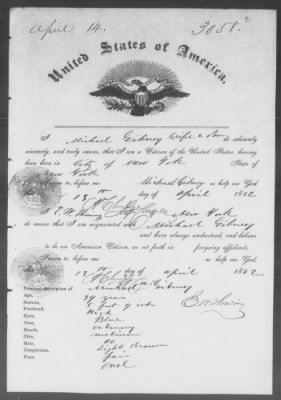 April 14. 3058.
United States of America.
I Michael Gibney Wife & Son do solemnly
sincerely, and truly swear, that I am a Citizen of the United States, having
been born in City of New York State of
New York
Sworn to, before me Michael Gibney so help me God
day of April 1862
New York
do swear that I am acquainted with Michael Gibney
and have always understood, and believe
to be an American Citizen, as set forth in foregoing affidavit.
Sworn to, before me so help me God,
day of April 1862
Personal description of Michael Gibney
Age, 29 years
Stature, 5 feet
Forehead, High
Eyes, Blue
Nose, ordinary
Mouth, medium
Chin, do
Hair, Light Brown
Complexion, fair
Face, oval